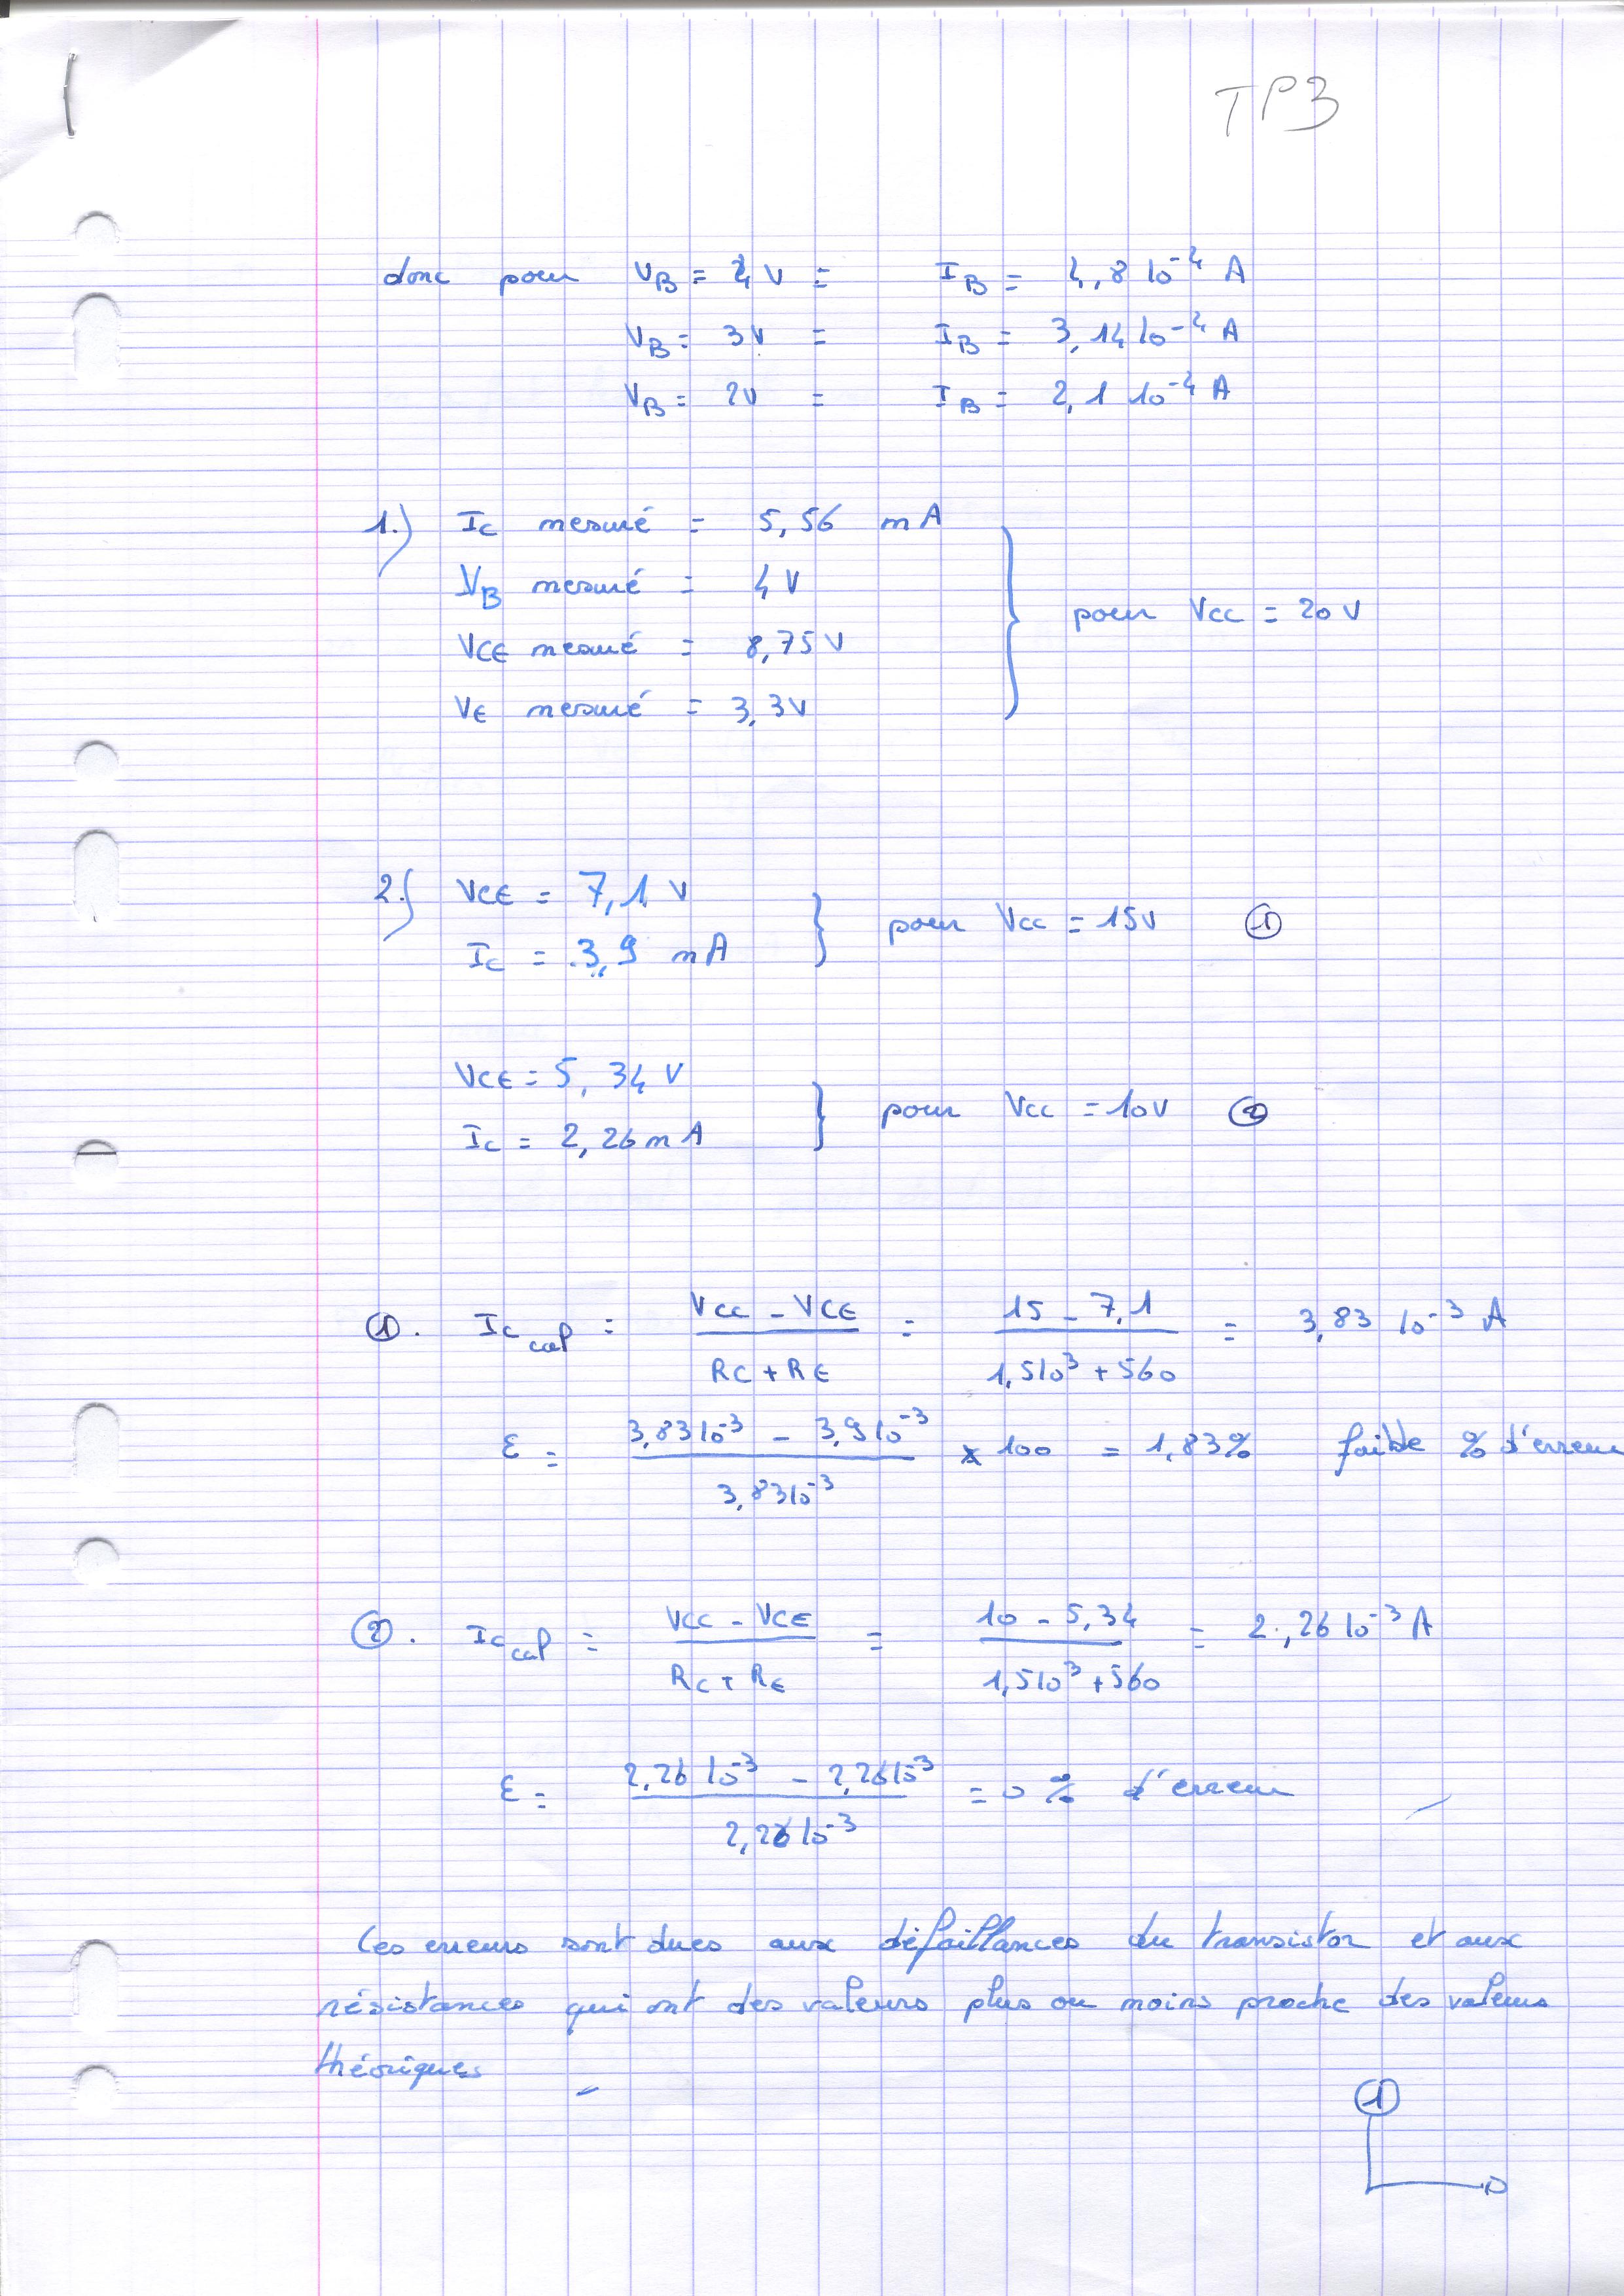 TP3
donc pour VB = 4V = IB = 4,8 10⁻⁴ A
VB = 3V = IB = 3,14 10⁻⁴ A
VB = 2V = IB = 2,1 10⁻⁴ A
1.) Ic mesuré = 5,56 mA
VB mesuré = 4V
VCE mesuré = 8,75V
VE mesuré = 3,3V
pour Vcc = 20V
2.) VCE = 7,1 V
Ic = 3,9 mA
pour Vcc = 15V ①
VCE = 5,34 V
Ic = 2,26 mA
pour Vcc = 10V ②
①. Ic cal = (Vcc - VCE) / (RC + RE) = (15 - 7,1) / (1,5 10³ + 560) = 3,83 10⁻³ A
ε = (3,83 10⁻³ - 3,9 10⁻³) / (3,83 10⁻³) × 100 = 1,83% faible % d'erreur
②. Ic cal = (Vcc - VCE) / (RC + RE) = (10 - 5,34) / (1,5 10³ + 560) = 2,26 10⁻³ A
ε = (2,26 10⁻³ - 2,26 10⁻³) / (2,26 10⁻³) = 0 % d'erreur
Ces erreurs sont dues aux défaillances du transistor et aux
résistances qui ont des valeurs plus ou moins proche des valeurs
théoriques
①